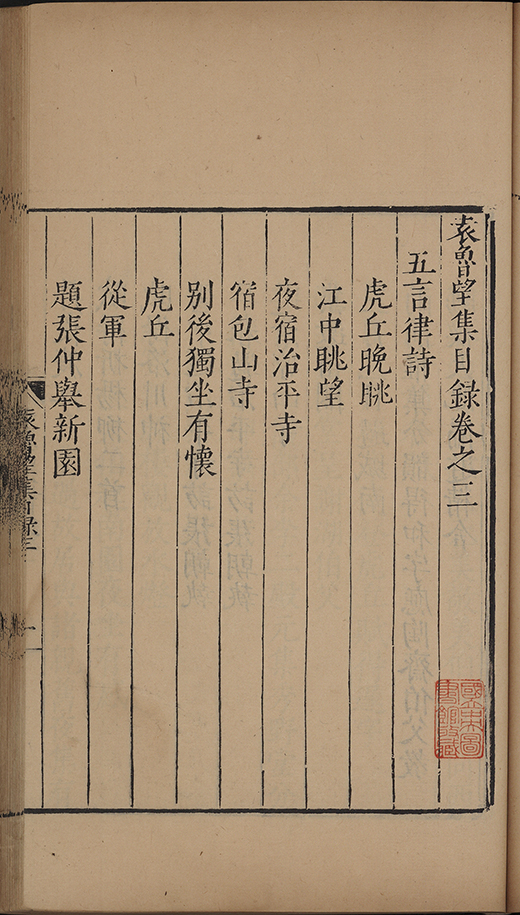 袁魯望集目錄卷之三
五言律詩
虎丘晚眺
江中眺望
夜宿治平寺
宿包山寺
別後獨坐有懷
虎丘
從軍
題張仲舉新園
袁魯望集目錄三
一
國立中央圖書館收藏